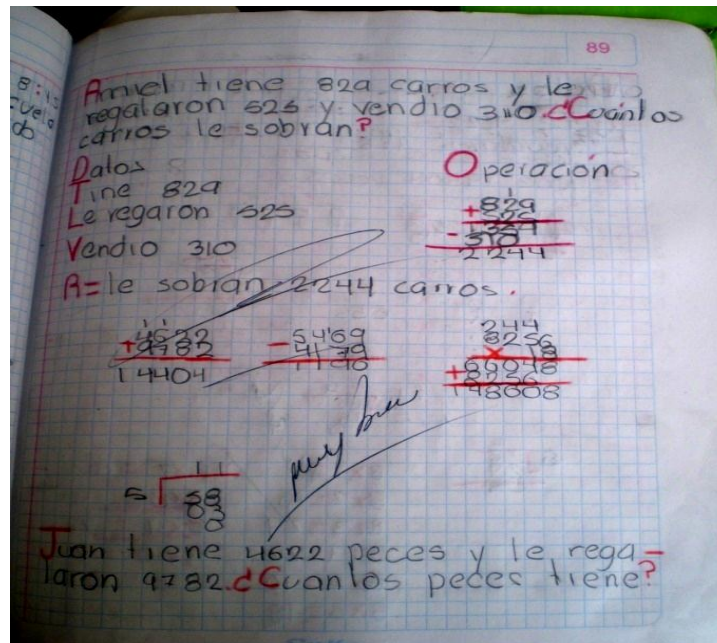 89
Amiel tiene 829 carros y le
regalaron 525 y vendio 310. ¿Cuántos
carros le sobran?
Datos
Operación
Tine 829
Le regaron 525
Vendio 310
+829
-310
2244
R=le sobran 2244 carros.
+9782
14404
-5469
244
8256
148608
muy bien
11
5 58
03
Juan tiene 4622 peces y le rega-
laron 9782. ¿Cuantos peces tiene?